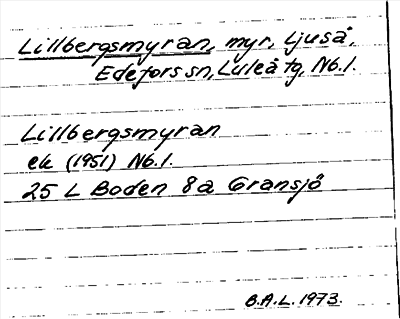 Lillbergsmyran, myr, Ljuså,
Edefors sn, Luleå tg, Nb.l.
Lillbergsmyran
ek (1951) Nb.l.
25 L Boden 8a Gransjö
B.A.L. 1973.